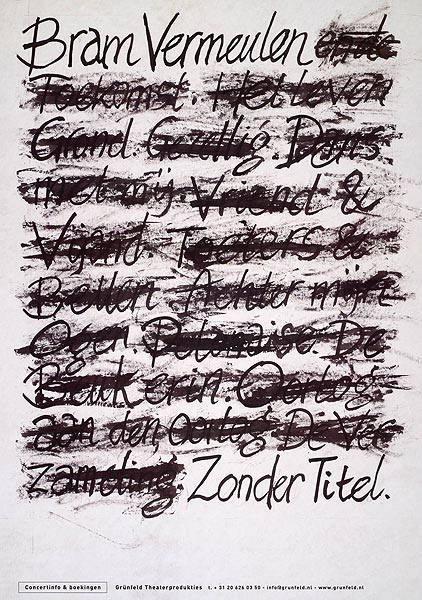 Bram Vermeulen en de
Toekomst. Het Leven
Grand. Gezellig. Dans
met mij. Vriend &
Vijand. Teaters &
Bellen. Achter mijn
Ogen. Polonaise. De
Beuk erin. Oorlog
aan den oorlog. De Ver
zameling. Zonder Titel.
Concertinfo & boekingen Grünfeld Theaterprodukties t. + 31 20 626 03 50 - info@grunfeld.nl - www.grunfeld.nl